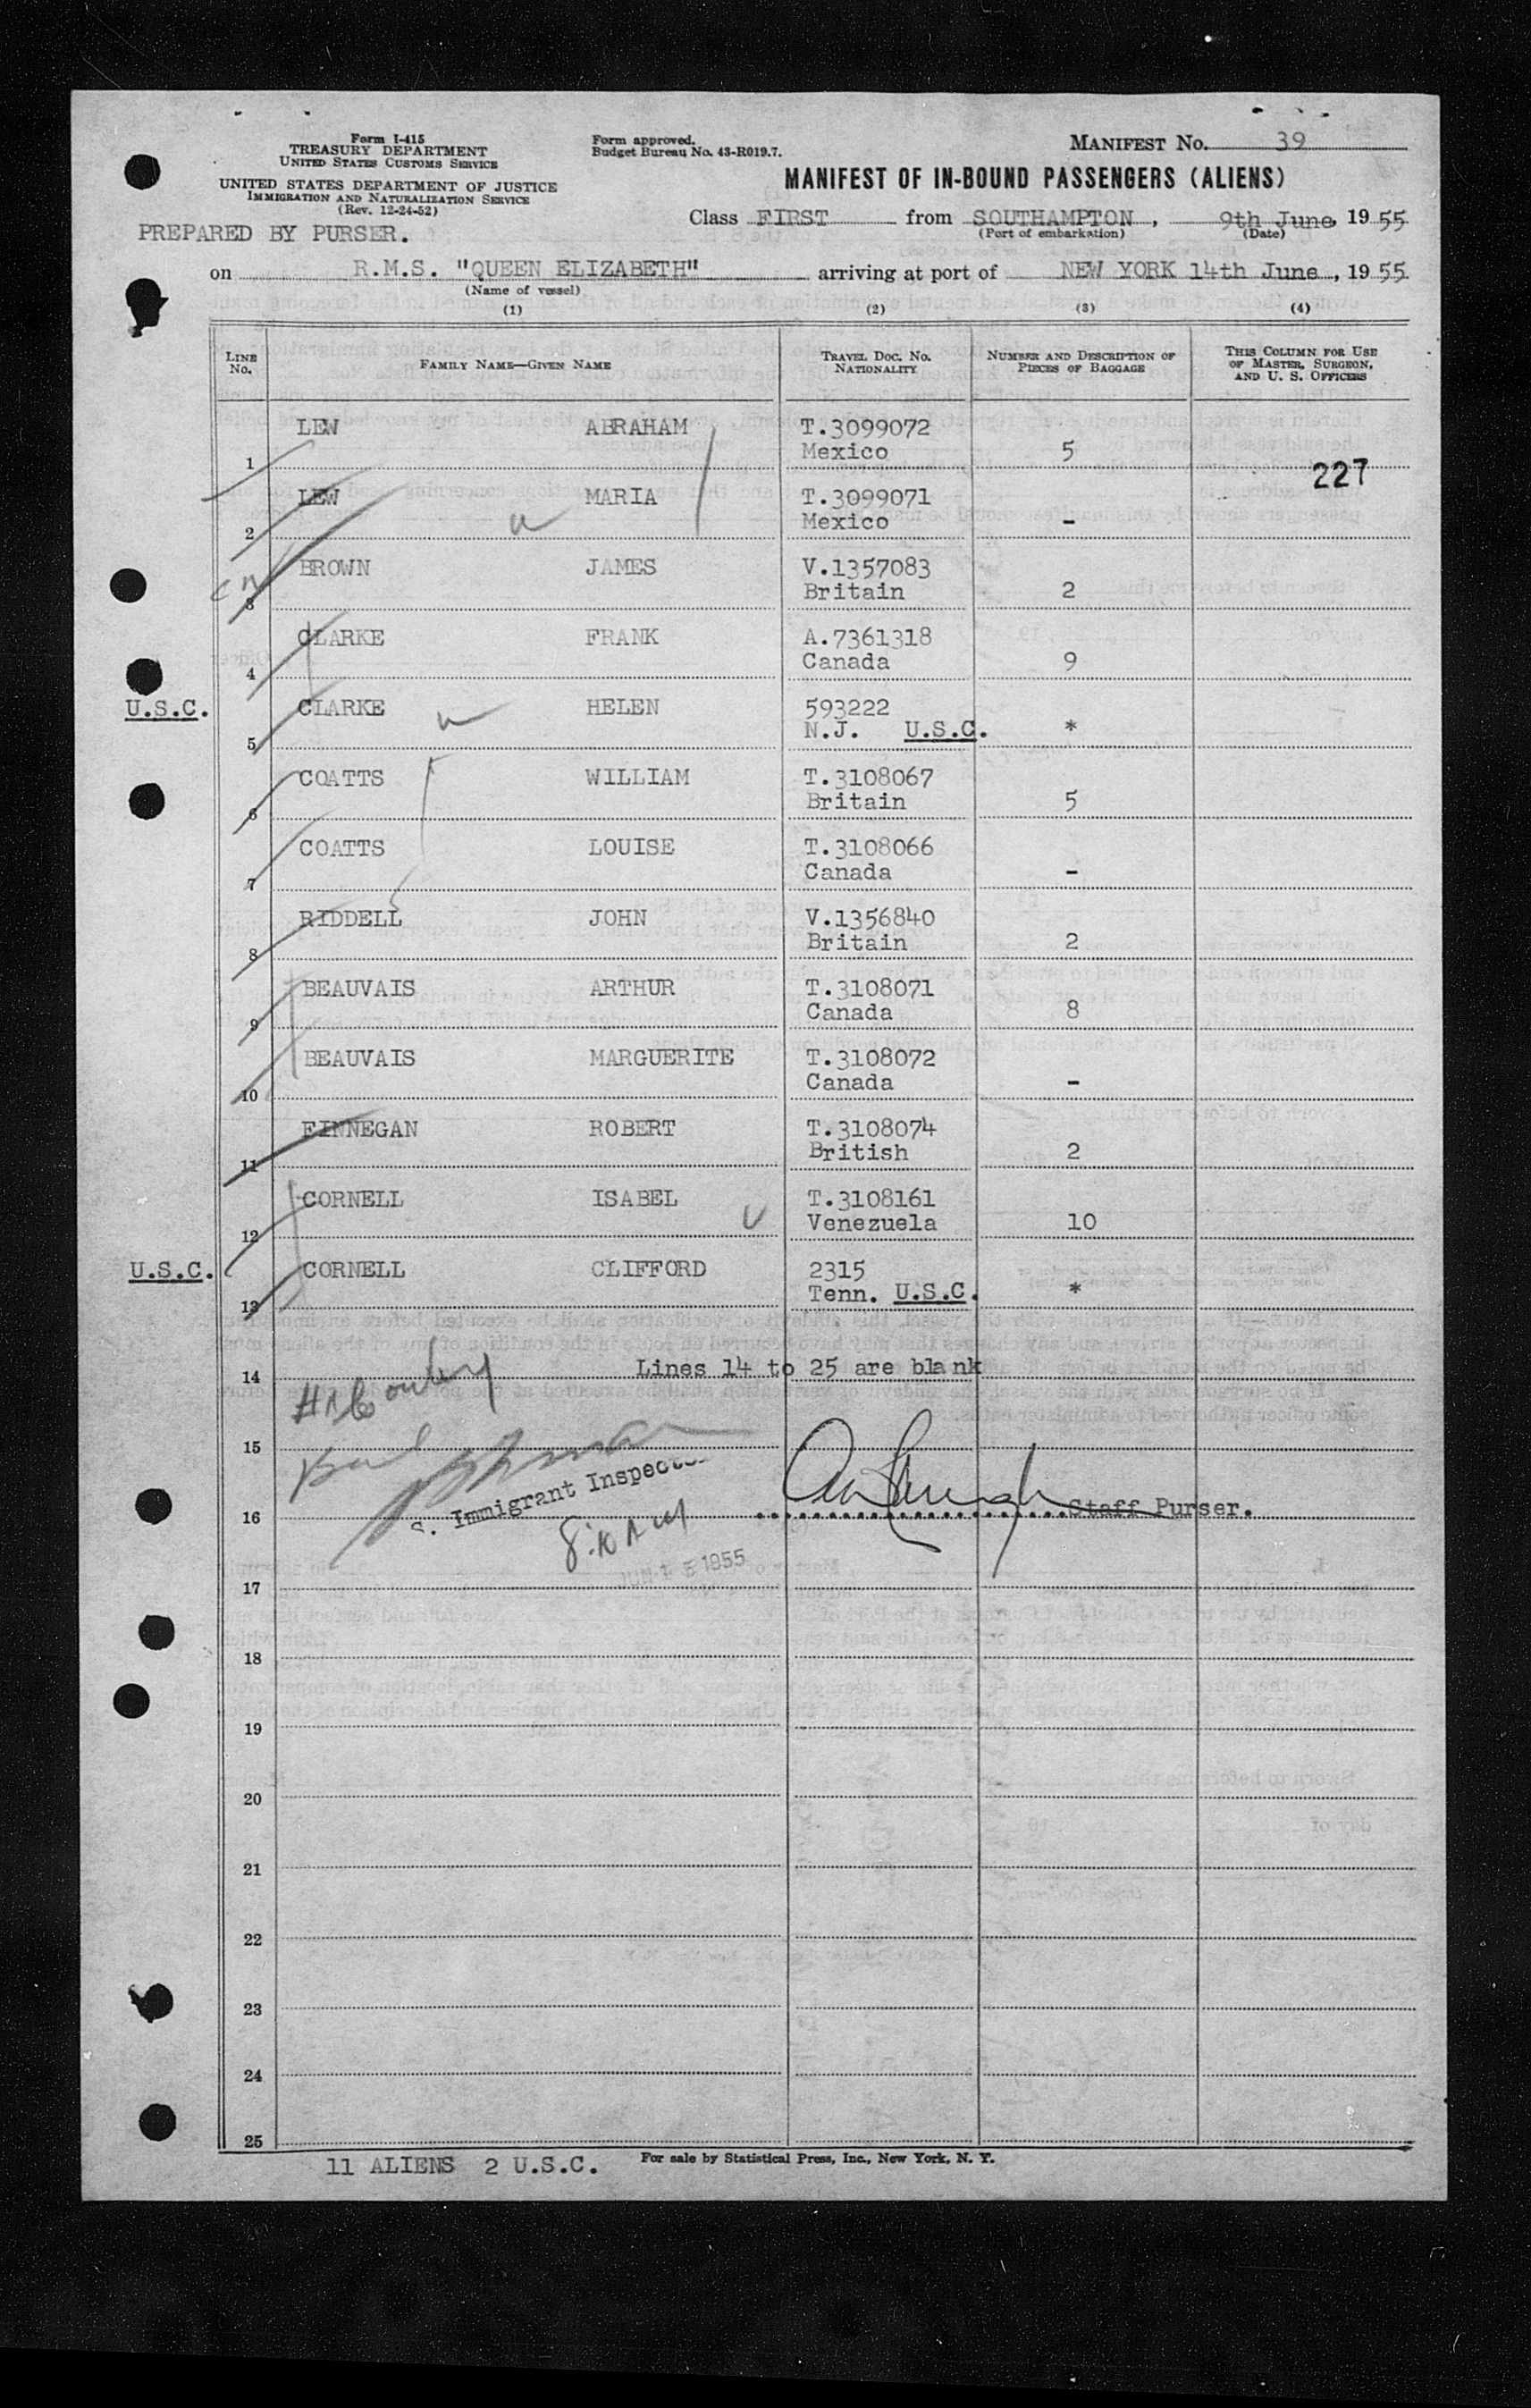 Form I-415
TREASURY DEPARTMENT
UNITED STATES CUSTOMS SERVICE
UNITED STATES DEPARTMENT OF JUSTICE
IMMIGRATION AND NATURALIZATION SERVICE
(Rev. 12-24-52)
PREPARED BY PURSER.
Form approved.
Budget Bureau No. 43-R019.7.
MANIFEST No. 39
MANIFEST OF IN-BOUND PASSENGERS (ALIENS)
Class FIRST from SOUTHAMPTON, 9th June, 1955
(Port of embarkation) (Date)
on R.M.S. "QUEEN ELIZABETH" arriving at port of NEW YORK 14th June, 1955
(Name of vessel)
(1) (2) (3) (4)
LINE No. FAMILY NAME—GIVEN NAME TRAVEL DOC. NO. NATIONALITY NUMBER AND DESCRIPTION OF PIECES OF BAGGAGE THIS COLUMN FOR USE OF MASTER, SURGEON, AND U. S. OFFICERS
1 LEW ABRAHAM T.3099072 Mexico 5
227
2 LEW MARIA T.3099071 Mexico -
3 BROWN JAMES V.1357083 Britain 2
4 CLARKE FRANK A.7361318 Canada 9
U.S.C. 5 CLARKE HELEN 593222 N.J. U.S.C. *
6 COATTS WILLIAM T.3108067 Britain 5
7 COATTS LOUISE T.3108066 Canada -
8 RIDDELL JOHN V.1356840 Britain 2
9 BEAUVAIS ARTHUR T.3108071 Canada 8
10 BEAUVAIS MARGUERITE T.3108072 Canada -
11 FINNEGAN ROBERT T.3108074 British 2
12 CORNELL ISABEL T.3108161 Venezuela 10
U.S.C. 13 CORNELL CLIFFORD 2315 Tenn. U.S.C. *
14 Lines 14 to 25 are blank
15
S. Immigrant Inspector
16 Staff Purser.
JUN 1955
17
18
19
20
21
22
23
24
25
11 ALIENS 2 U.S.C. For sale by Statistical Press, Inc., New York, N. Y.